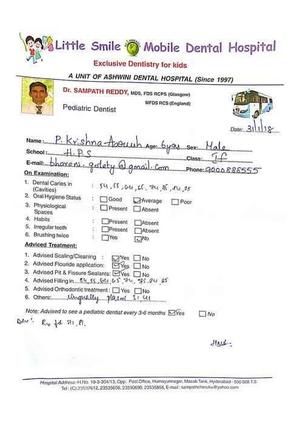 Little Smile Mobile Dental Hospital
Exclusive Dentistry for kids
A UNIT OF ASHWINI DENTAL HOSPITAL (Since 1997)
Dr. SAMPATH REDDY, MDS, FDS RCPS (Glasgow)
MFDS RCS (England)
Pediatric Dentist
Date: 31/1/18
Name: P. Krishna Age: 6yrs Sex: Male
School: H.P.S Class:
E-mail: @gmail.com Phone: 9000888555
On Examination:
1. Dental Caries in : 54, 55, 64, 65, 74, 75, 84, 85
(Cavities)
2. Oral Hygiene Status : Good Average Poor
3. Physiological : Present Absent
Spaces
4. Habits : Present Absent
5. Irregular teeth : Present Absent
6. Brushing twice : Yes No
Adviced Treatment:
1. Advised Scaling/Cleaning : Yes No
2. Advised Fluoride application: Yes No
3. Advised Pit & Fissure Sealants: Yes No
4. Advised Filling in 54, 55, 64, 65, 74, 75, 84, 85
5. Advised Orthodontic treatment : Yes No
6. Others: placed
Note: Advised to see a pediatric dentist every 3-6 months Yes No
Hospital Address: H.No. 10-3-304/13, Opp. Post Office, Humayunnagar, Masab Tank, Hyderabad - 500 028 T.S.